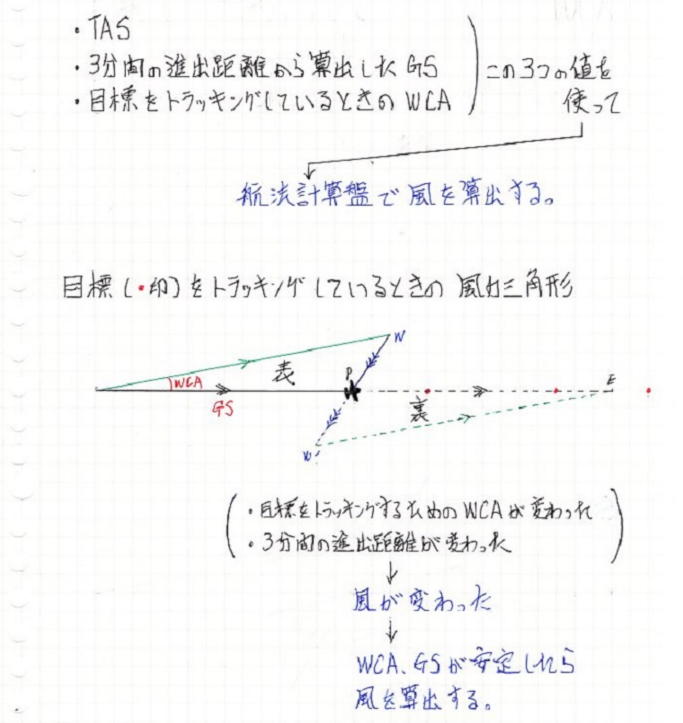 ・TAS
・3分間の進出距離から算出したGS
・目標をトラッキングしているときのWCA
この3つの値を
使って
航法計算盤で風を算出する。
目標(・印)をトラッキングしているときの風力三角形
W
表
P
E
WCA
GS
裏
W'
・目標をトラッキングするためのWCAが変わった
・3分間の進出距離が変わった
風が変わった
WCA、GSが安定したら
風を算出する。